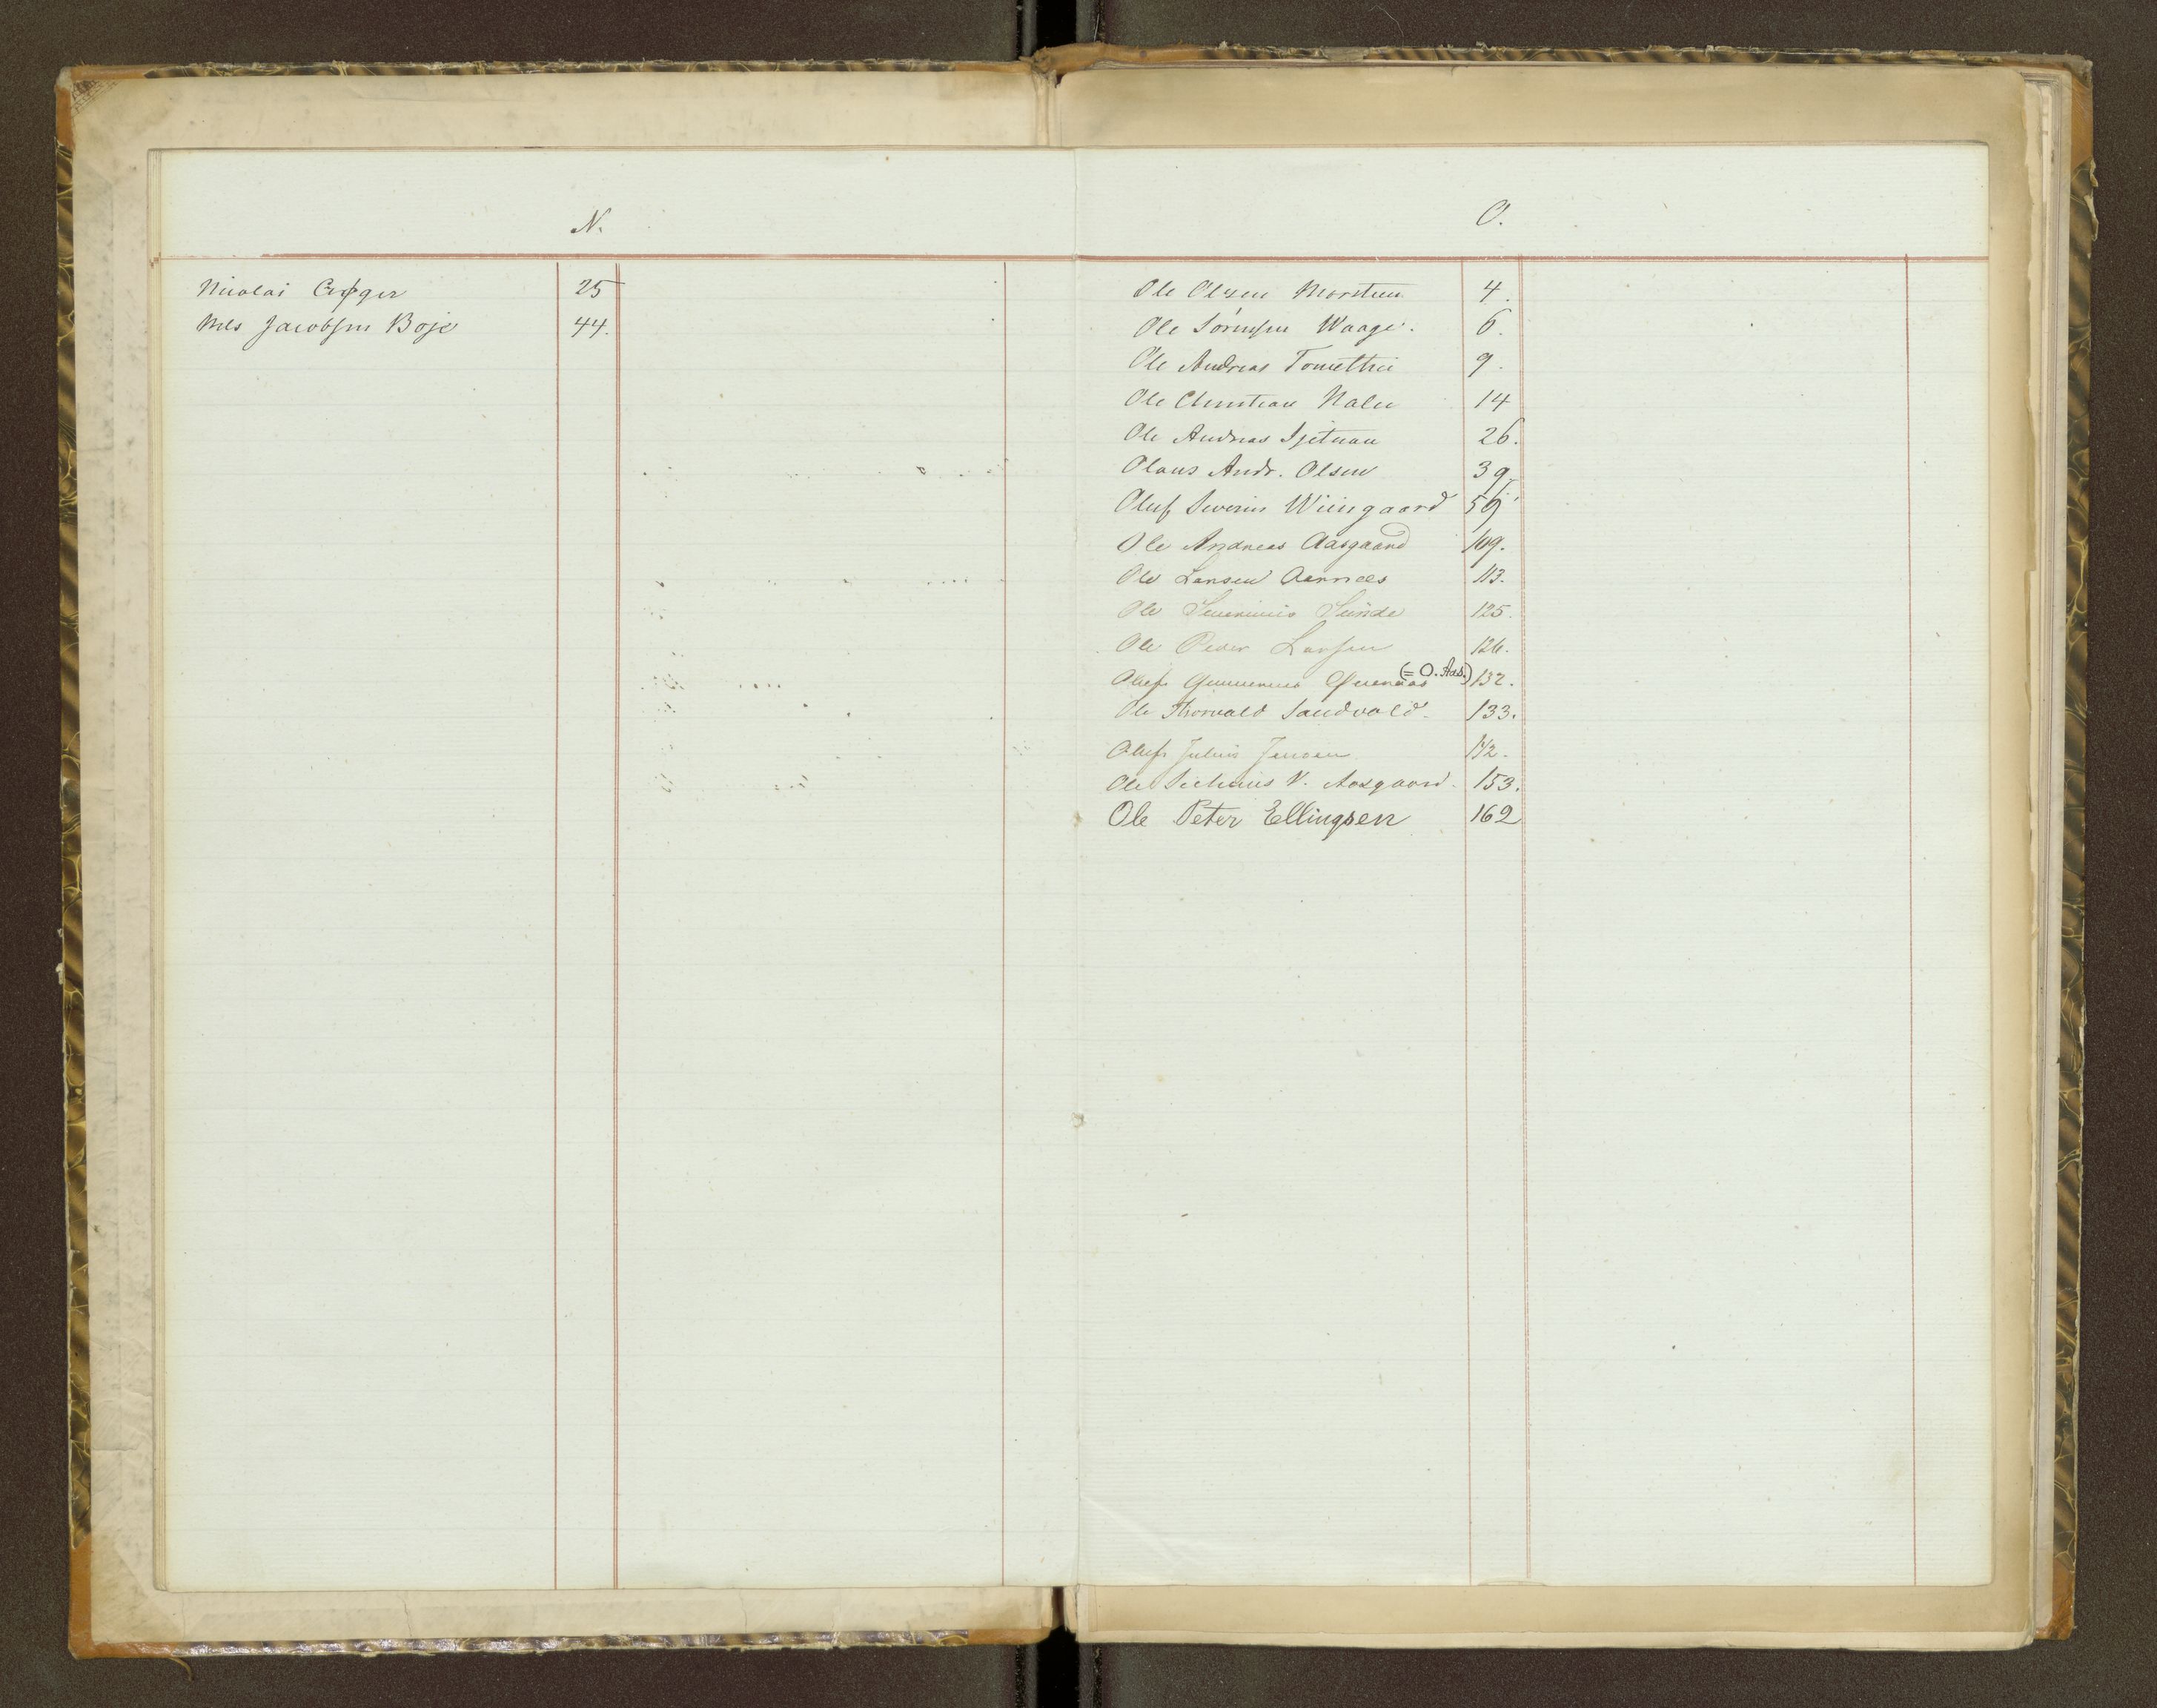 N.
Nicolai Crøger 25
Nils Jacobsen Boje 44.
O.
Ole Olsen Morstuen 4.
Ole Sörensen Waage. 6.
Ole Andreas 9.
Ole Christian 14
Ole Andreas 26.
Olaus Andr. Olsen 39.
Oluf Severin Wiingaard 59
Ole Andreas Aasgaard 109.
Ole Larsen Aarnæs 113.
Ole Severinus Sunde 125.
Ole Peder Larsen 126.
Oluf (= O. Aas.) 132.
Ole Thorvald Sandvold. 133.
Oluf Julius Jensen 142.
Ole V. Aasgaard. 153.
Ole Peter Ellingsen 162